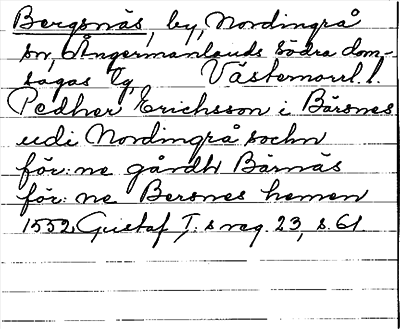 Bergsnäs, by, Nordingrå
sn, Ångermanlands södra dom-
sagas tg, Västernorrl. l.
Pedher Erichsson i Bärsnes
udi Nordingrå sochn
för:ne gårdh Bärnäs
för:ne Bersnes hemen
1552, Gustaf I:s reg. 23, s. 61